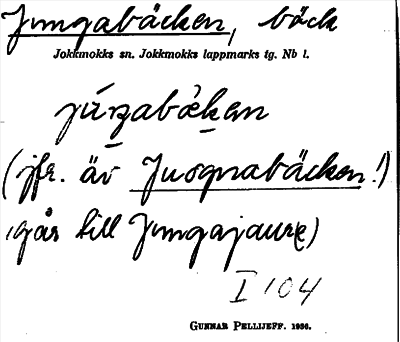 Jungabäcken, bäck
Jokkmokks sn. Jokkmokks lappmarks tg. Nb l.
(jfr. äv Juognabäcken!)
(går till Jungajaure)
I 104
Gunnar Pellijeff. 1936.